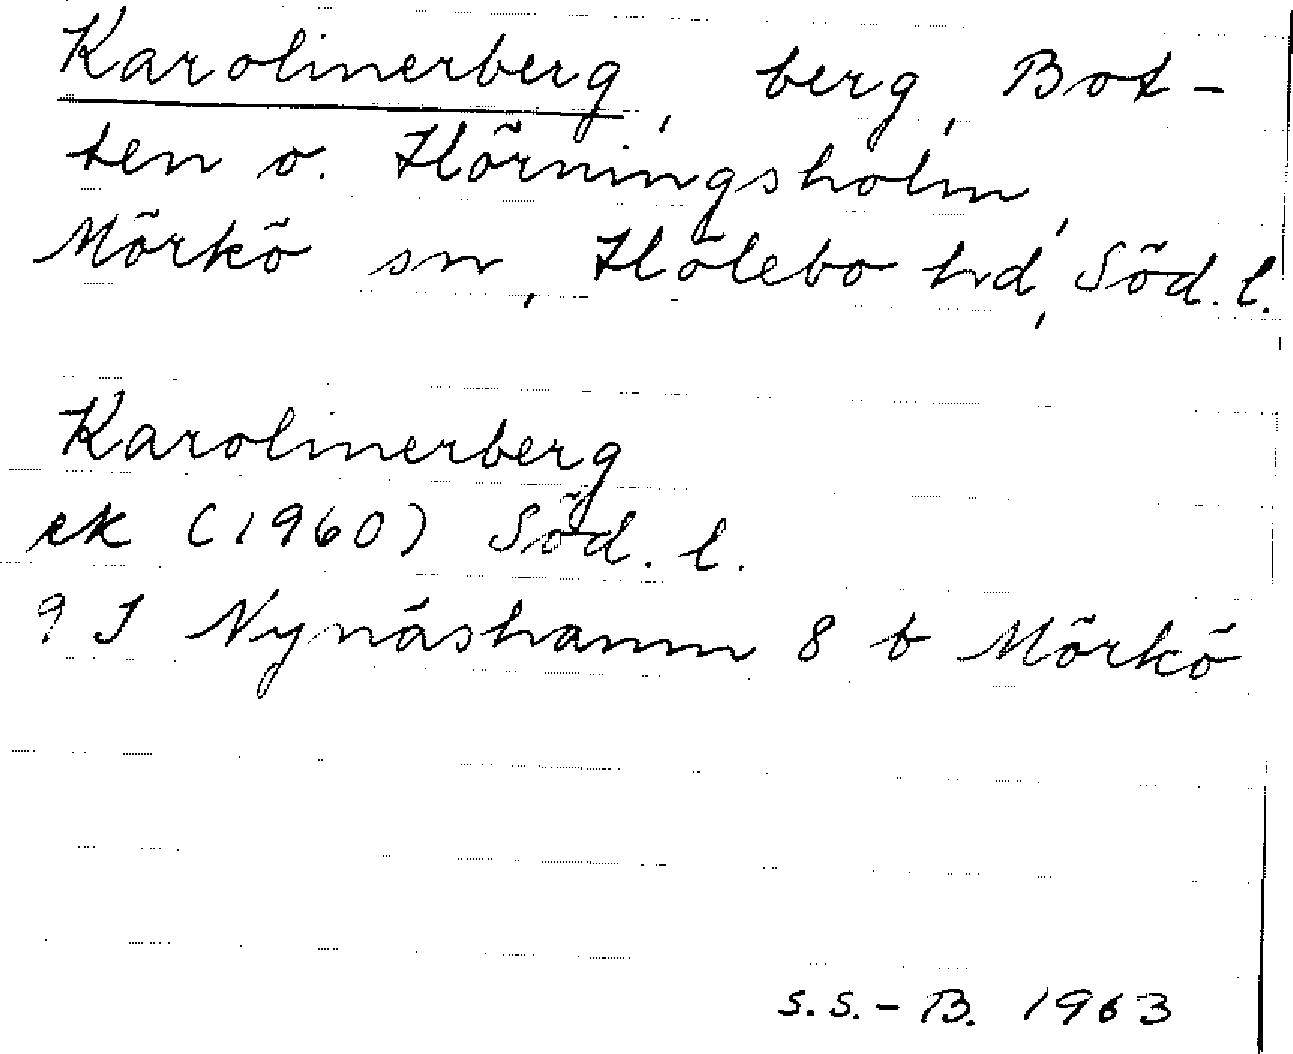 Karolinerberg, berg, Bot-
ten o. Hörningsholm,
Mörkö sn, Hölebo hd, Söd. l.
Karolinerberg
ek (1960) Söd. l.
9 I Nynäshamn 8 b Mörkö
S.S.-B. 1963